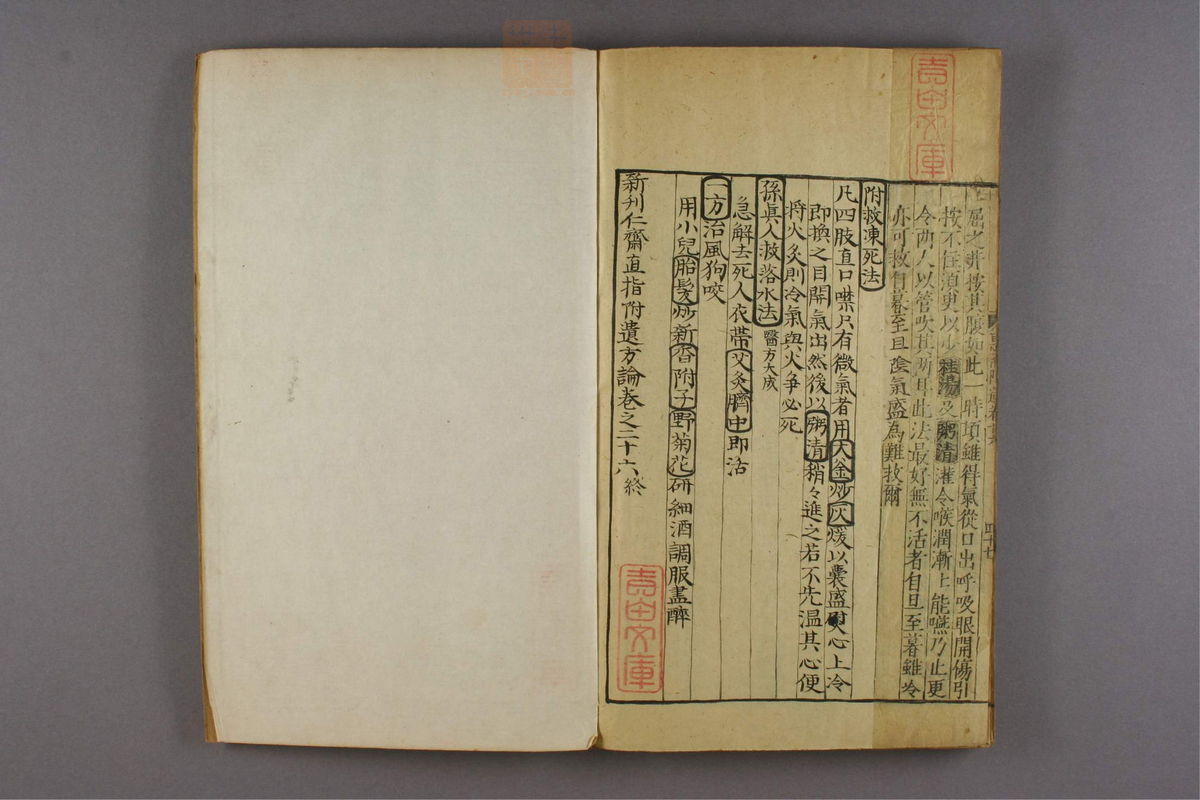 屈之并按其腹如此一時頃雖得氣從口出呼吸眼開傷引
按不住須臾以少桂湯及粥清灌令喉潤漸上能嚥乃止更
令兩人以管吹其兩耳此法最好無不活者自旦至暮雖冷
亦可救自暮至旦陰氣盛為難救爾
附救凍死法
凡四肢直口噤只有微氣者用大釡炒灰煖以囊盛熨心上冷
即換之目開氣出然後以粥清稍々進之若不先温其心便
將火灸則冷氣與火争必死
孫真人救落水法 醫方大成
急解去死人衣帶艾灸臍中即活
一方治風狗咬
用小兒胎髮炒新香附子野菊花研細酒調服盡醉
新刋仁齋直指附遺方論卷之二十六終
四十七
吉田文庫
吉田文庫